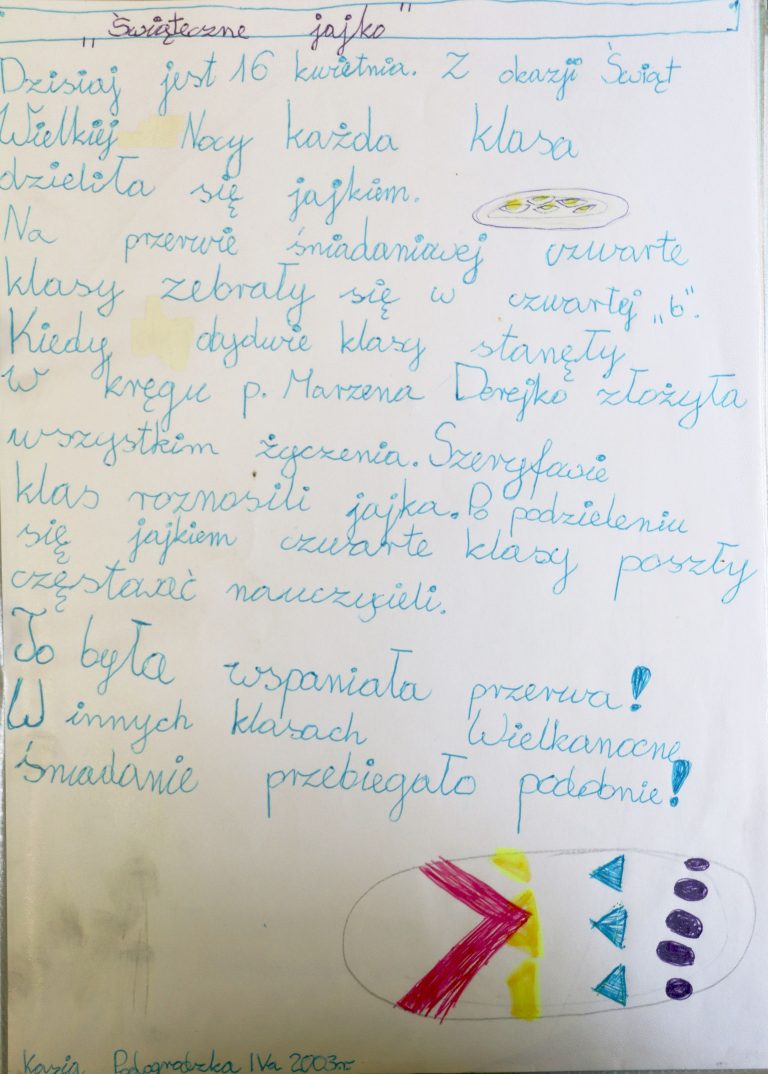 „Świąteczne jajko"
Dzisiaj jest 16 kwietnia. Z okazji Świąt
Wielkiej Nocy każda klasa
dzieliła się jajkiem.
Na przerwie śniadaniowej czwarte
klasy zebrały się w czwartej „b".
Kiedy obydwie klasy stanęły
w kręgu p. Marzena Derejko złożyła
wszystkim życzenia. Szeryfowie
klas roznosili jajka. Po podzieleniu
się jajkiem czwarte klasy poszły
częstować nauczycieli.
To była wspaniała przerwa!
W innych klasach Wielkanocne
śniadanie przebiegało podobnie!
Kasia IVa 2003r.